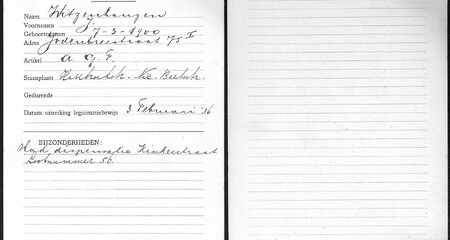 Naam Witzenhausen
Voornamen J.
Geboortedatum 7-3-1900
Adres Jodenbreestraat 75 I
Artikel a g f.
Standplaats
Gedurende
Datum uitreiking legitimatiebewijs 3 Februari '36
BIJZONDERHEDEN:
Heeft dispensatie Kinkerstraat
Lootnummer 50.